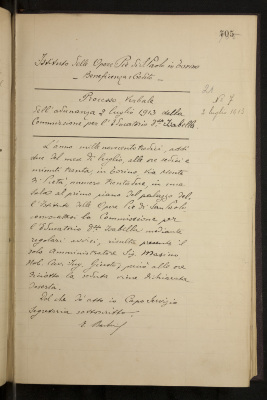 705
Istituto delle Opere Pie di S. Paolo in Torino
- Beneficenza e Credito -
Processo Verbale
dell'adunanza 2 luglio 1913 della
Commissione per l'Educatorio Dsse Isabella.
N. 7
2 luglio 1913
L'anno mille novecento tredici, addì
due del mese di luglio, alle ore sedici e
minuti trenta, in Torino, via Monte
di Pietà, numero trentadue, in una
sala al primo piano del palazzo del-
l'Istituto delle Opere Pie di San Paolo,
convocatasi la Commissione per
l'Educatorio Dsse Isabella mediante
regolari avvisi, risulta presente il
solo Amministratore Sig. Masino
Nob. Cav. Ing. Giusto; perciò alle ore
diciotto la seduta viene dichiarata
deserta.
Del che dà atto in Capo Servizio
Segreteria sottoscritto.